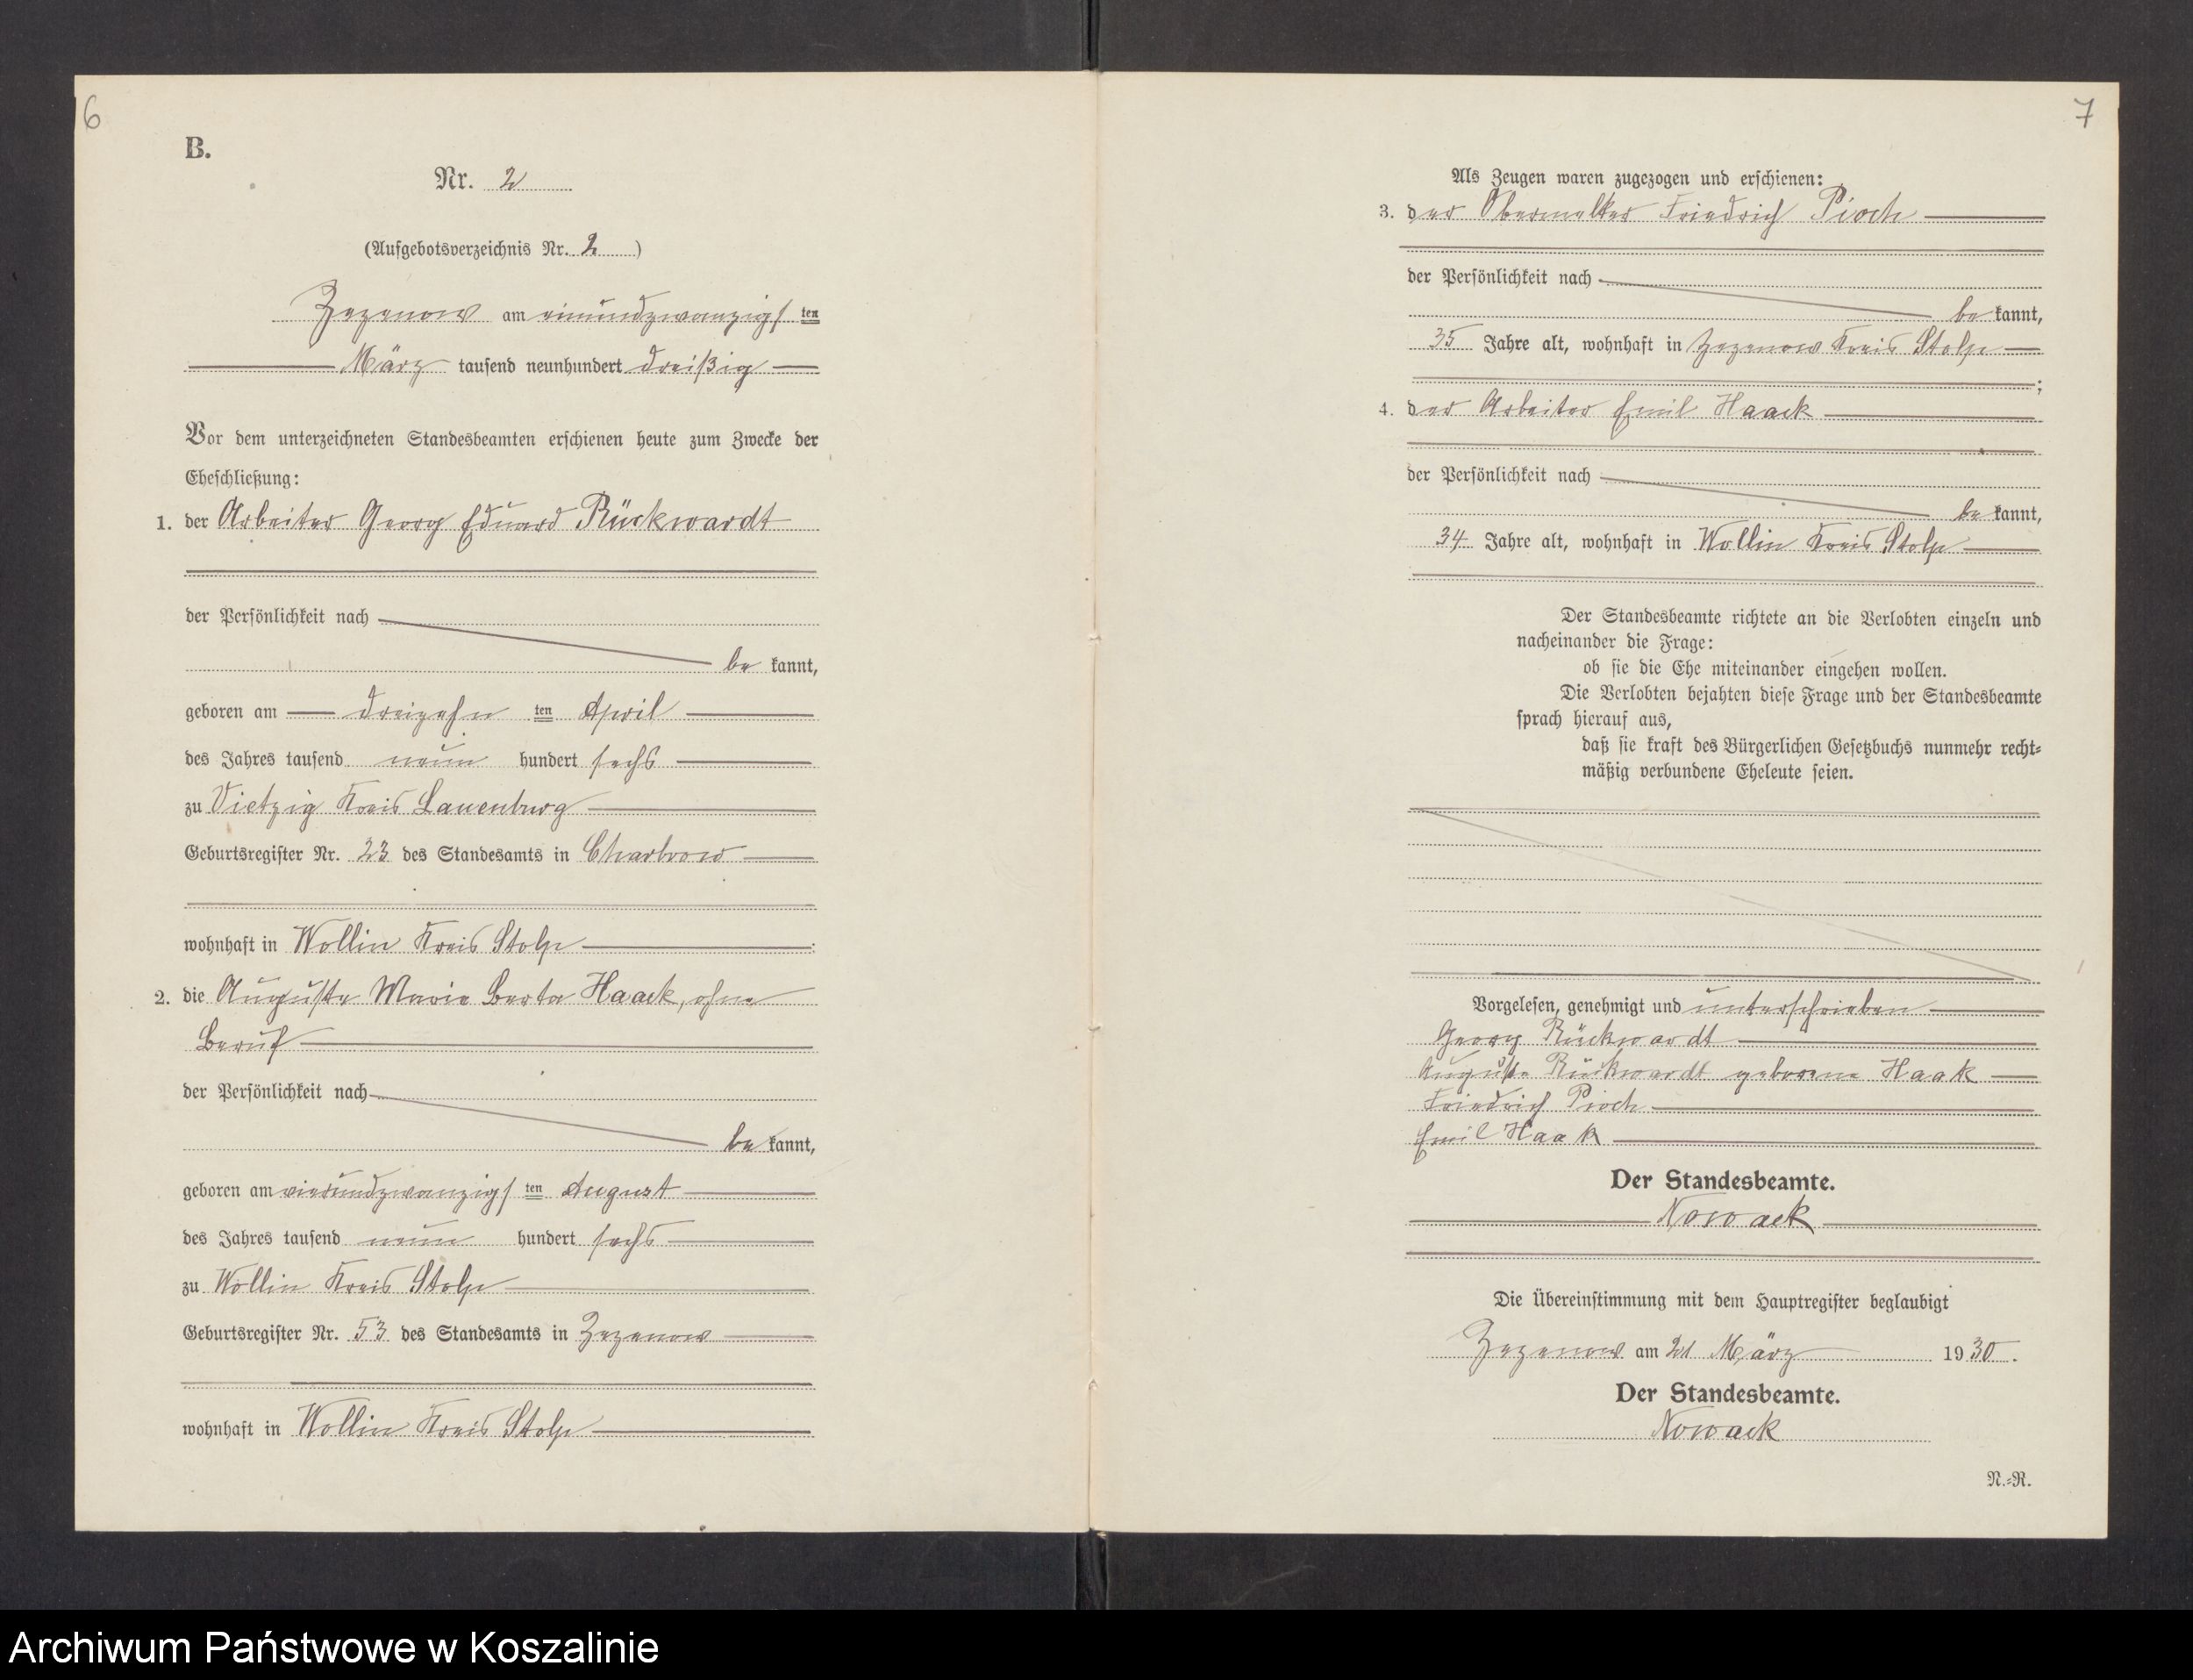 6
B.
Nr. 2
(Aufgebotsverzeichnis Nr. 2)
Zezenow am einundzwanzigsten
März tausend neunhundert dreißig
Vor dem unterzeichneten Standesbeamten erschienen heute zum Zwecke der
Eheschließung:
1. der Arbeiter Georg Eduard Rückwardt
der Persönlichkeit nach
bekannt,
geboren am dreizehnten April
des Jahres tausend neun hundert sechs
zu Vietzig Kreis Lauenburg
Geburtsregister Nr. 23 des Standesamts in Charbrow
wohnhaft in Wollin Kreis Stolp
2. die Auguste Marie Berta Haack, ohne
Beruf
der Persönlichkeit nach
bekannt,
geboren am vierundzwanzigsten August
des Jahres tausend neun hundert sechs
zu Wollin Kreis Stolp
Geburtsregister Nr. 53 des Standesamts in Zezenow
wohnhaft in Wollin Kreis Stolp
7
Als Zeugen waren zugezogen und erschienen:
3. der Obermelker Friedrich Pioch
der Persönlichkeit nach
bekannt,
35 Jahre alt, wohnhaft in Zezenow Kreis Stolp
;
4. der Arbeiter Emil Haack
der Persönlichkeit nach
bekannt,
34 Jahre alt, wohnhaft in Wollin Kreis Stolp
Der Standesbeamte richtete an die Verlobten einzeln und
nacheinander die Frage:
ob sie die Ehe miteinander eingehen wollen.
Die Verlobten bejahten diese Frage und der Standesbeamte
sprach hierauf aus,
daß sie kraft des Bürgerlichen Gesetzbuchs nunmehr recht-
mäßig verbundene Eheleute seien.
Vorgelesen, genehmigt und unterschrieben
Georg Rückwardt
Auguste Rückwardt geborene Haak
Friedrich Pioch
Emil Haak
Der Standesbeamte.
Nowack
Die Übereinstimmung mit dem Hauptregister beglaubigt
Zezenow am 21 März 1930.
Der Standesbeamte.
Nowack
N.-R.
Archiwum Państwowe w Koszalinie